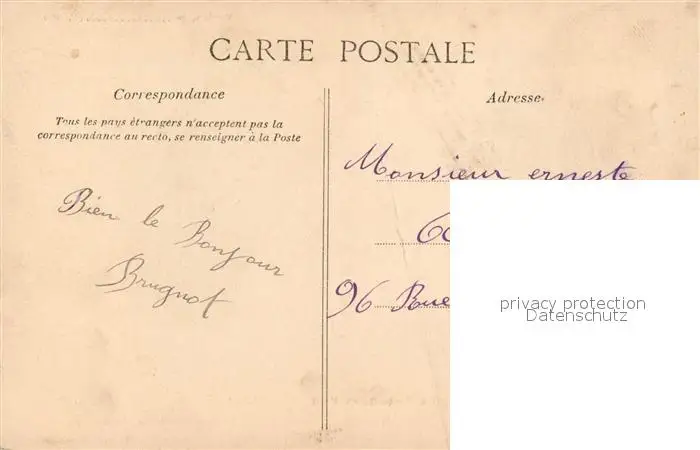 CARTE POSTALE
Correspondance
Tous les pays étrangers n'acceptent pas la
correspondance au recto, se renseigner à la Poste
Bien le Bonjour
Brugnot
Adresse
Monsieur erneste
96 Rue
privacy protection
Datenschutz